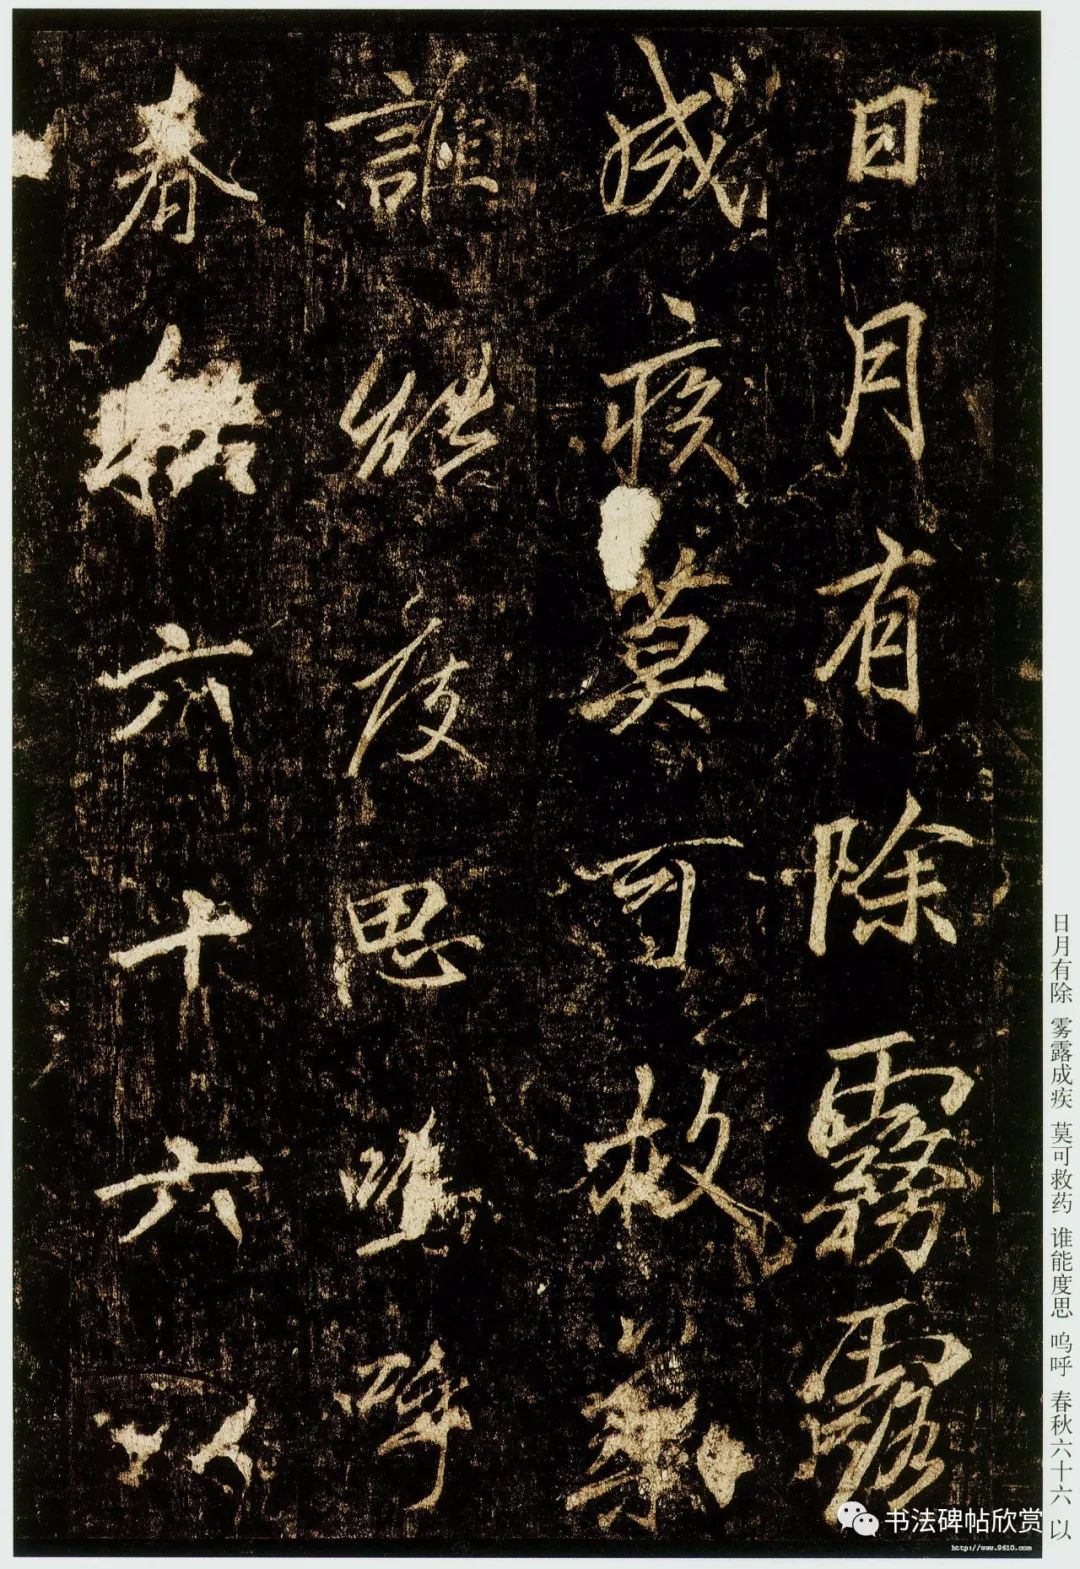 日月有除霧露
成疾莫可救藥
誰能度思嗚呼
春秋六十六以
日月有除 雾露成疾 莫可救药 谁能度思 呜呼 春秋六十六 以
书法碑帖欣赏
http://www.9610.com